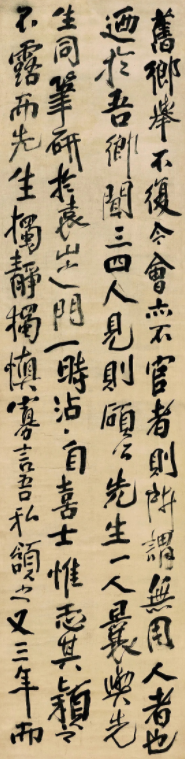 舊鄉舉不復令會亦不官者則所謂無用人者也
迺於吾鄉聞三四人見則顧公先生一人曩與先
生同筆研於袁山之門一時沾沾自喜士惟志其穎
不露而先生獨靜獨慎寡言吾私頷之又三年而